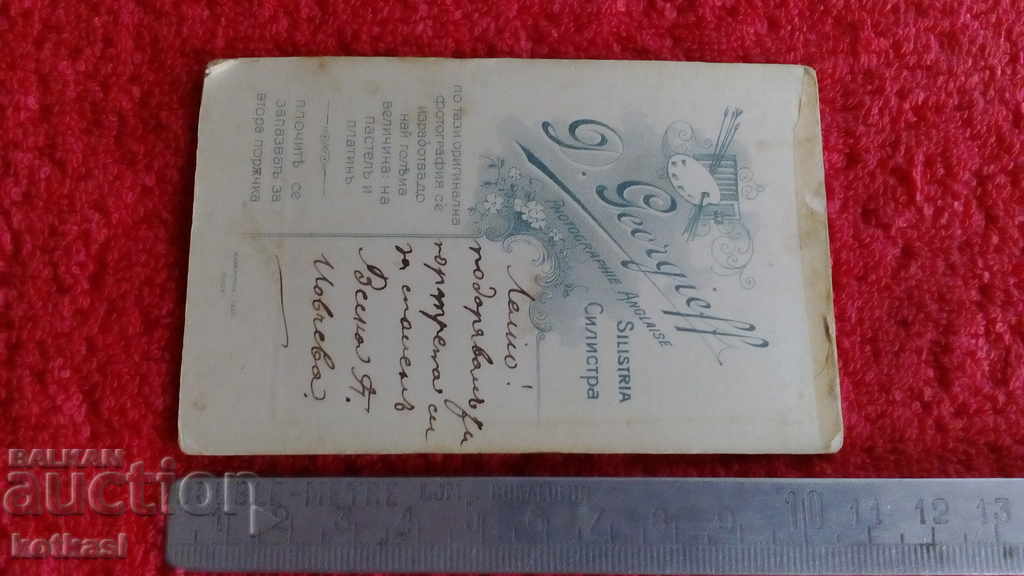 D. Georgieff
PHOTOGRAPHIE ANGLAISE
SILISTRIA
СИЛИСТРА
по тази оригинална
фотография се
изработва до
най голѣма
величина: на
пастелъ и
платинъ
плочитѣ се
запазватъ за
втора порѫчка
Лельо!
подарявамъ ви
портрета си
за споменъ
Весена А.
Иовчева.
BALKAN
auction
kotkasl
1 2 3 4 5 6 7 8 9 10 11 12 13